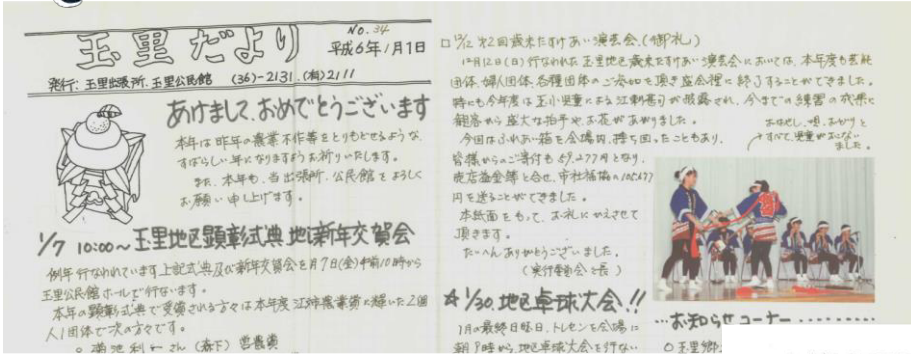 玉里だより
No.34
平成6年1月1日
発行：玉里出張所.玉里公民館 (36)-2131.(有)2111
あけまして、おめでとうございます
本年は昨年の農業不作等をとりもどせるような、
すばらしい年になりますようお祈りいたします。
また、本年も、当出張所、公民館をよろしく
お願い申し上げます。
1/7 10:00〜玉里地区顕彰式典 地区新年交賀会
例年行なわれています上記式典及び新年交賀会を1月7日(金)午前10時から
玉里公民館ホールで行ないます。
本年の顕彰式典で受賞される方々は本年度江刺農業賞に輝いた2個
人1団体で次の方々です。
○菊池利 さん (森下) 営農賞
□12/12 第2回歳末たすけあい演芸会.(御礼)
12月12日(日)行なわれた玉里地区歳末たすけあい演芸会においては、本年度も芸能
団体、婦人団体、各種団体のご参加を頂き盛会裡に終了することができました。
特にも今年度は玉小児童による江刺甚句が披露され、今までの練習の成果に
観客から盛大な拍手や、お花がありました。
おはやし、唄、おどりと
すべて、児童がおこない
ました。
今回はふれあい箱を会場内、持ち回ったこともあり、
皆様からのご寄付も69,277円となり、
売店益金等と合せ、市社福協へ105,677
円を送ることができました。
本紙面をもって、お礼にかえさせて
頂きます。
たいへんありがとうございました。
(実行委員会会長)
☆1/30.地区卓球大会!!
1月の最終日曜日、トレセンを会場に
朝9時から、地区卓球大会を行ない
…お知らせコーナー…………
○玉里郷